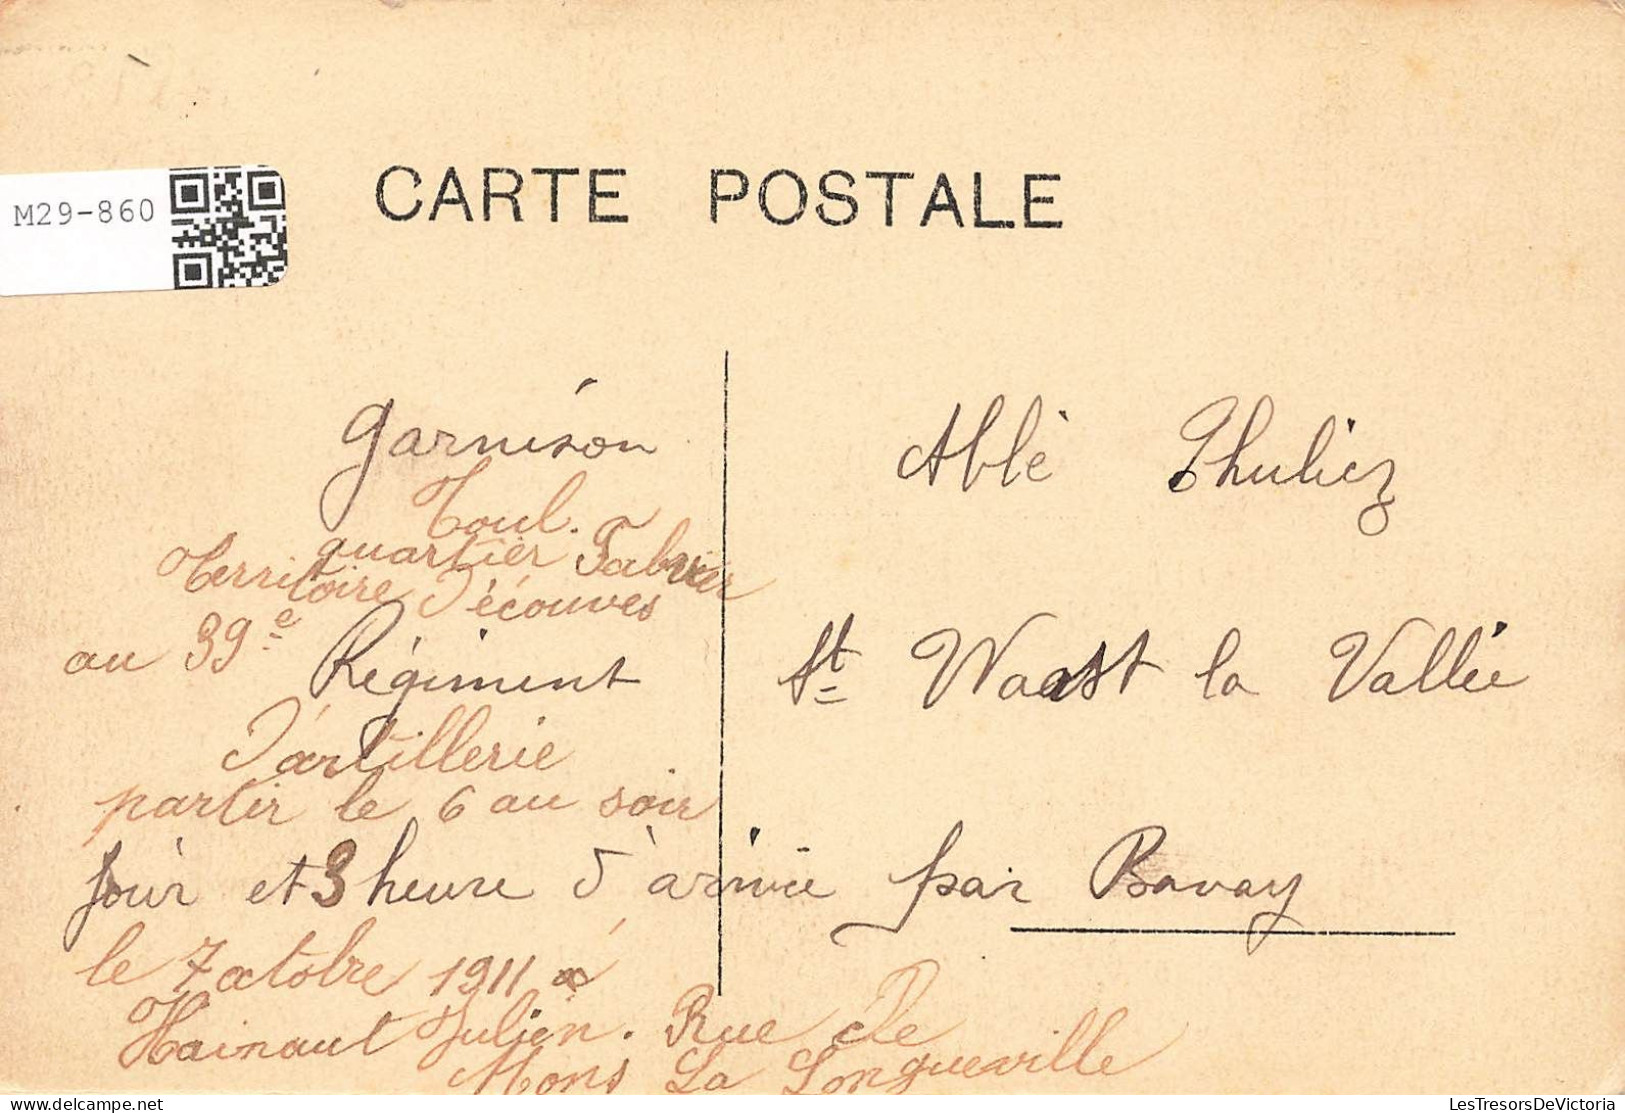 M29-860
CARTE POSTALE
Garnison
Toul.
quartier Fabvier
Territoire d'écouves
au 39e Régiment
d'artillerie
partir le 6 au soir
jour et 3 heure d'arrivée
le 7 octobre 1911 à
Hainaut Julien. Rue de
Mons La Longueville
Abbé Thuliez
St Waast la Vallée
par Bavay
LesTresorsDeVictoria